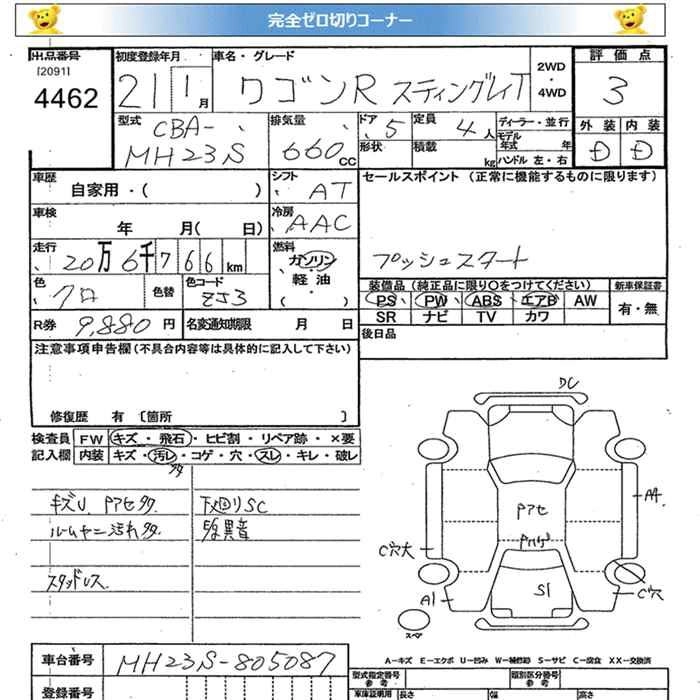 完全ゼロ切りコーナー
出品番号 初度登録年月 車名・グレード 2WD・4WD 評価点
[2091]
4462 21 1月 ワゴンR スティングレイT 3
型式 CBA-MH23S 排気量 660cc ドア 5 定員 4人 ディーラー・並行 外装 内装
形状 積載 kg モデル年式 年 ハンドル 左・右 D D
車歴 自家用・( ) シフト AT セールスポイント (正常に機能するものに限ります)
車検 年 月( 日) 冷房 AAC
走行 20万6千766km 燃料 ガソリン・軽油 プッシュスタート
色 クロ 色替 色コード ZJ3 装備品 (純正品に限り○をつけてください) 新車保証書
PS PW ABS エアB AW 有・無
SR ナビ TV カワ
R券 9,880円 名変通知期限 月 日 後日品
注意事項申告欄 (不具合内容等は具体的に記入して下さい)
修復歴 有 [箇所 ]
検査員 FW キズ・飛石・ヒビ割・リペア跡・×要
記入欄 内装 キズ・汚レ・コゲ・穴・スレ・キレ・破レ
キズU Pアセタタ 下廻りSC
異音
スタッドレス
DC
Pアセ
AA
C穴大
A1
S1
C穴
スペア
A-キズ E-エクボ U-凹み W-補修跡 S-サビ C-腐食 XX-交換済
車台番号 MH23S-805087 型式指定番号 参考 類別区分番号 参考
登録番号 車庫証明用 参考 長さ 幅 高さ